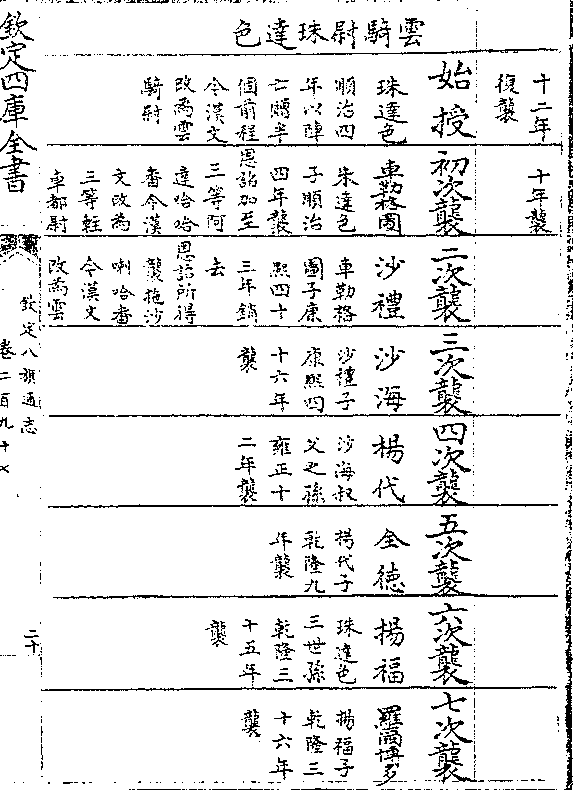 十二年
復襲
十年襲
雲騎尉珠達色
始授
珠達色
順治四
年以陣
亡贈半
個前程
今漢文
改為雲
騎尉
初次襲
車勒格圖
朱達色
子順治
四年襲
恩詔加至
三等阿
達哈哈
番今漢
文改為
三等輕
車都尉
二次襲
沙禮
車勒格
圖子康
熙四十
三年銷
去
恩詔所得
襲拖沙
喇哈番
今漢文
改為雲
三次襲
沙海
沙禮子
康熙四
十六年
襲
四次襲
楊代
沙海叔
父之孫
雍正十
二年襲
五次襲
全德
楊代子
乾隆九
年襲
六次襲
楊福
珠達色
三世孫
乾隆三
十五年
襲
七次襲
羅爾博多
楊福子
乾隆三
十六年
襲
欽定四庫全書
欽定八旗通志
卷二百九十
二十